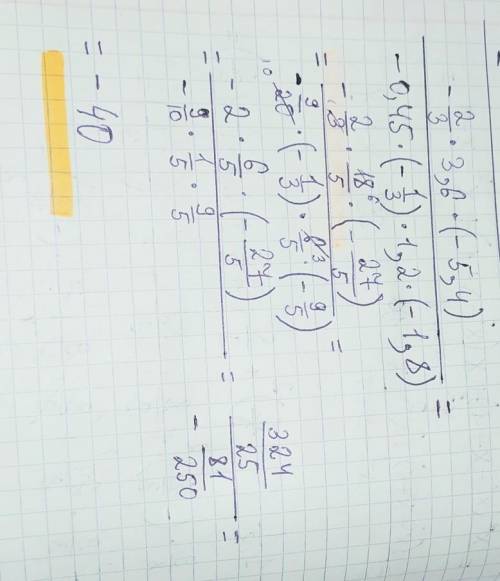 - 2/3 · 3,6 · (-5,4)
- 0,45 · (-1/3) · 1,2 · (-1,8) =
= - 2/3 · 18 6/5 · (- 27/5)
10 - 9/20 · (- 1/3) · 6 3/5 · (- 9/5) =
= - 2 · 6/5 · (- 27/5)
- 9/10 · 1/5 · 9/5 =
324/25
- 81/250 =
= - 40